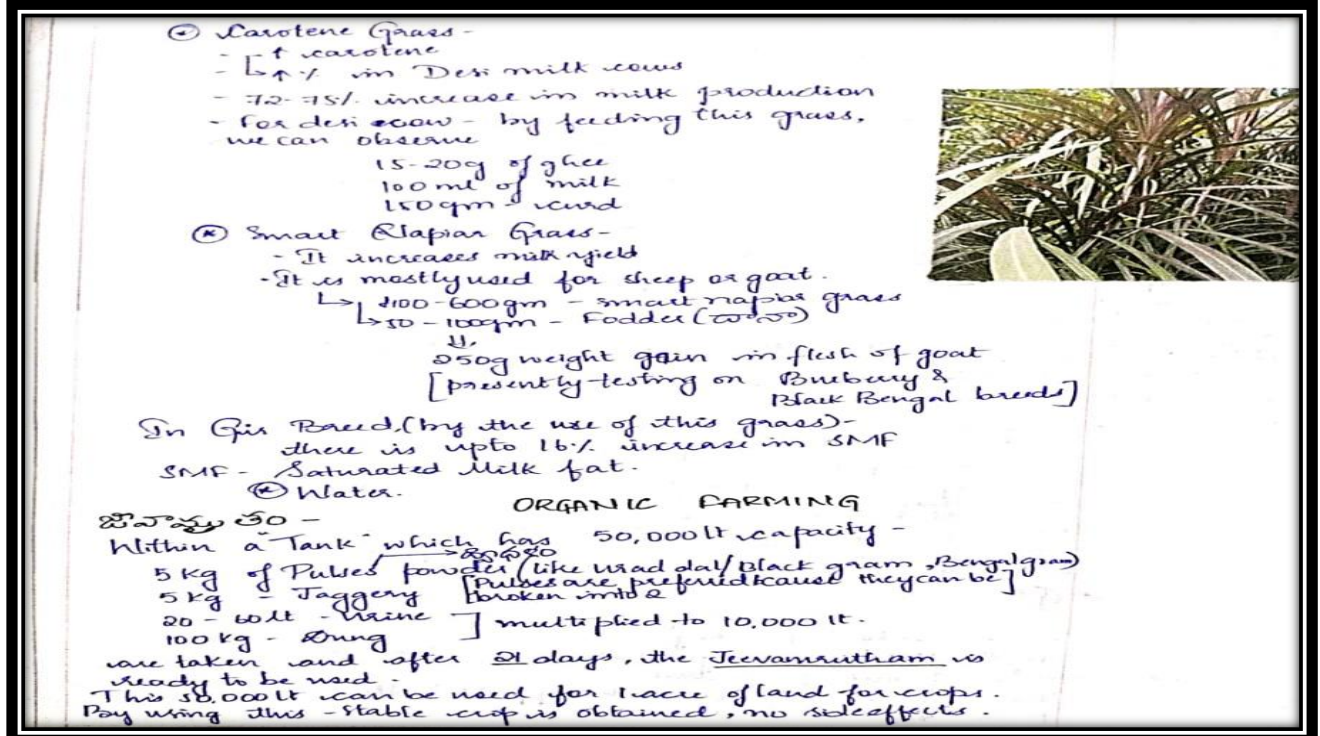 * Carotene Grass -
- ↑ carotene
- ↳ ↑ % in Desi milk cows
- 72-75% increase in milk production
- For desi cow - by feeding this grass,
we can observe
15-20g of ghee
100 ml of milk
150 gm - curd
* Smart Napiar Grass -
- It increases milk yield
- It is mostly used for sheep or goat.
↳ 600gm - smart napiar grass
↳ 50 - 100gm - Fodder (దాణా)
⇓
250g weight gain in flesh of goat
[presently testing on &
Black Bengal breeds]
In Gir Breed (by the use of this grass) -
there is upto 16% increase in SMF
SMF - Saturated Milk fat.
* Water.
ORGANIC FARMING
జీవామృతం -
Within a "Tank" which has 50,000 lt capacity -
5 kg of Pulses powder (like urad dal/Black gram, Bengal gram)
5 kg - Jaggery [Pulses are preferred cause they can be
broken into 2]
20 - 60 lt - Urine ] multiplied to 10,000 lt.
100 kg - Dung
are taken and after 21 days, the Jeevamrutham is
ready to be used.
This 50,000 lt can be used for 1 acre of land for crops.
By using this - stable crop is obtained, no side effects.